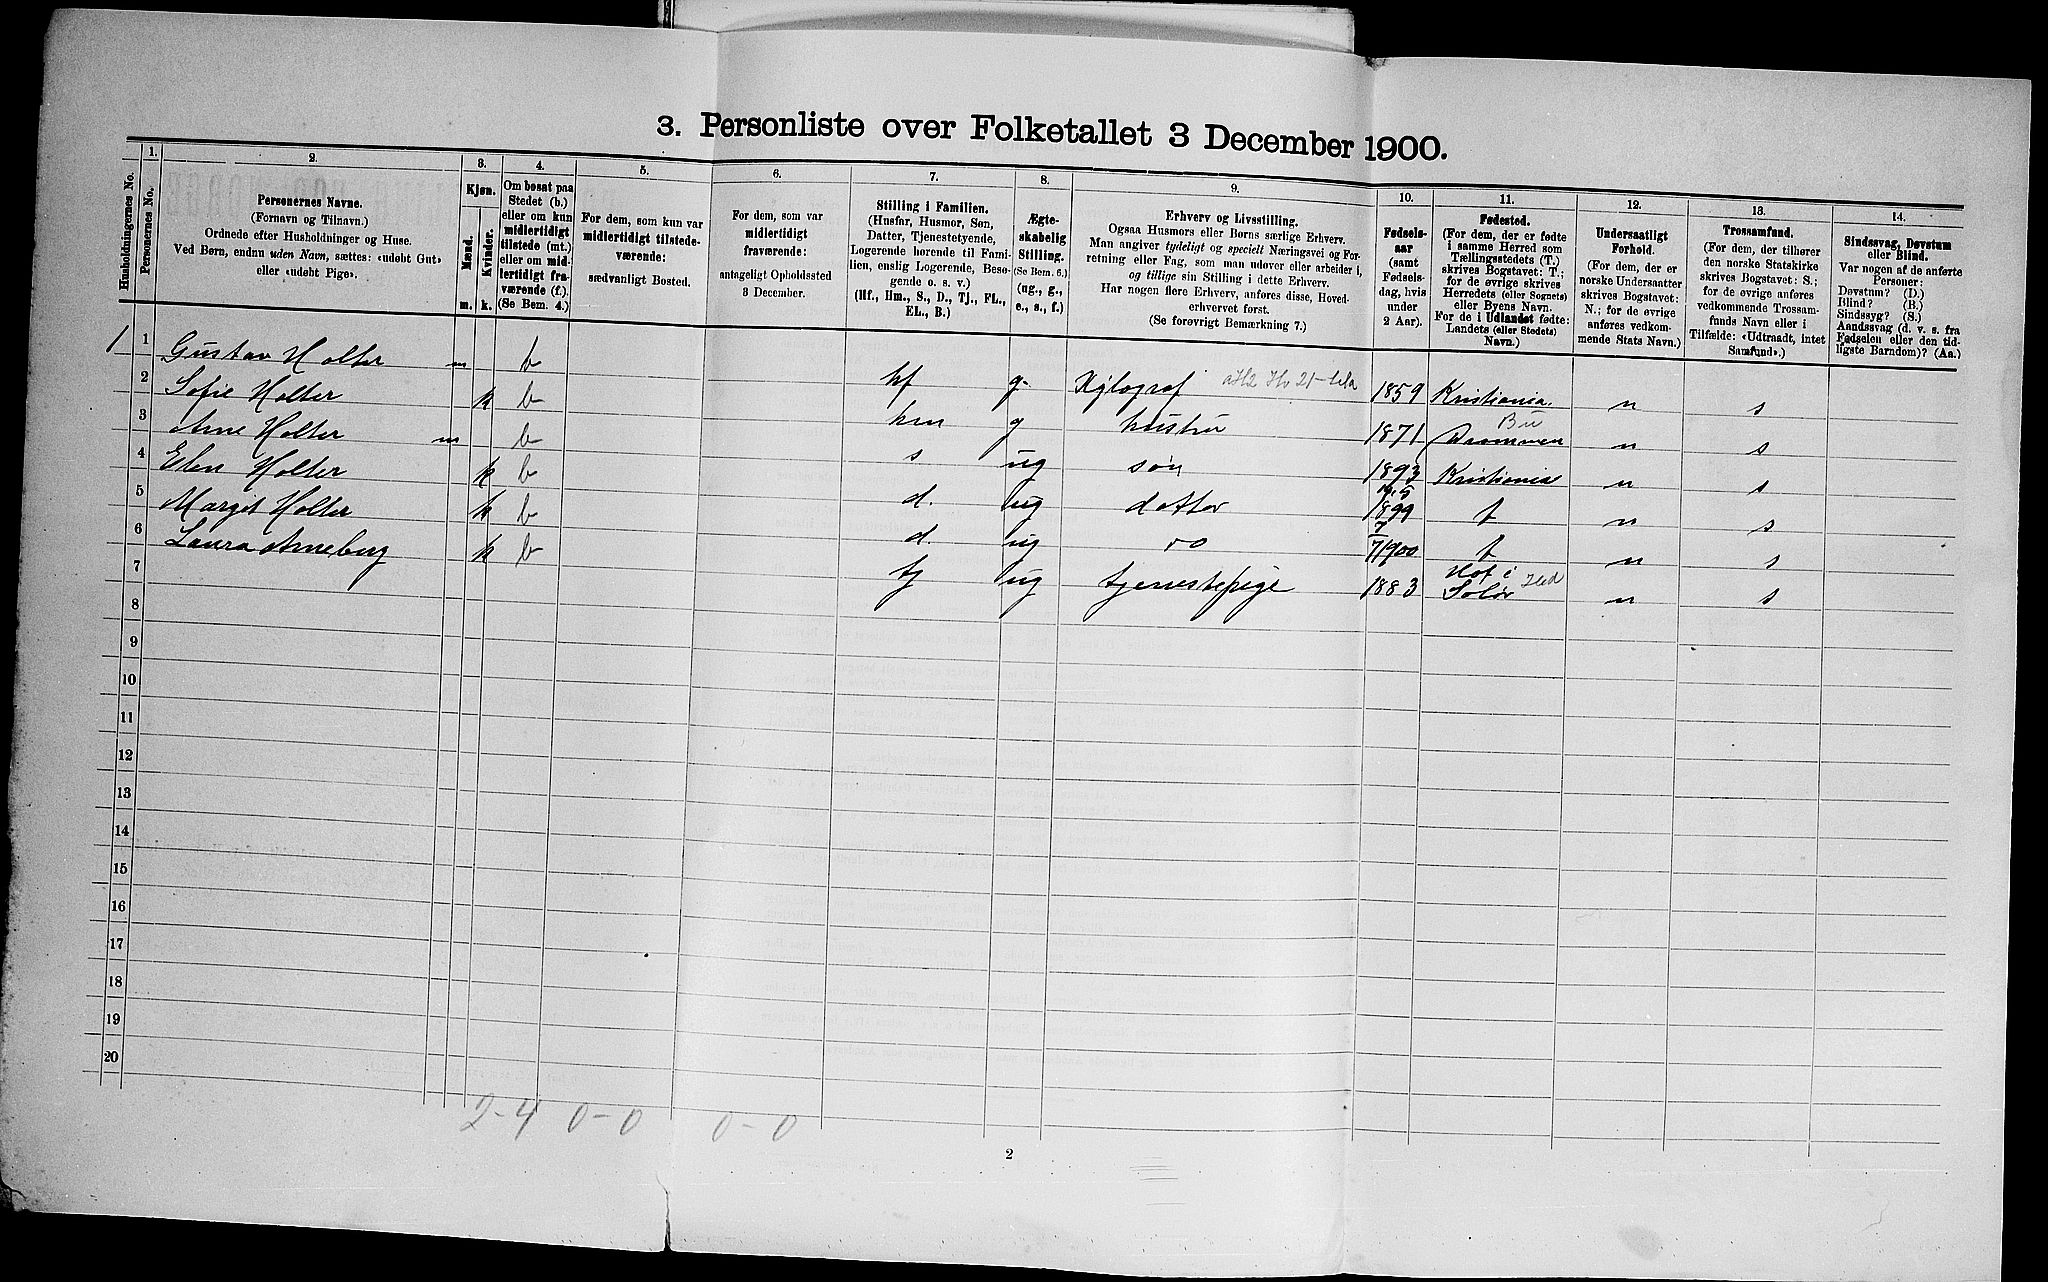 3. Personliste over Folketallet 3 December 1900.
Husholdningernes No.
1.
Personernes No.
2.
Personernes Navne.
(Fornavn og Tilnavn.)
Ordnede efter Husholdninger og Huse.
Ved Børn, endnu uden Navn, sættes: «udøbt Gut»
eller «udøbt Pige».
3.
Kjøn.
Mænd.
Kvinder.
m. k.
4.
Om bosat paa
Stedet (b.)
eller om kun
midlertidigt
tilstede (mt.)
eller om mid-
lertidigt fra-
værende (f.).
(Se Bem. 4.)
5.
For dem, som kun var
midlertidigt tilstede-
værende:
sædvanligt Bosted.
6.
For dem, som var
midlertidigt
fraværende:
antageligt Opholdssted
3 December.
7.
Stilling i Familien.
(Husfar, Husmor, Søn,
Datter, Tjenestetyende,
Logerende hørende til Fami-
lien, enslig Logerende, Besø-
gende o. s. v.)
(Hf., Hm., S., D., Tj., FL.,
EL., B.)
8.
Ægte-
skabelig
Stilling.
(Se Bem. 6.)
(ug., g.,
e., s., f.)
9.
Erhverv og Livsstilling.
Ogsaa Husmors eller Børns særlige Erhverv.
Man angiver tydeligt og specielt Næringsvei og For-
retning eller Fag, som man udøver eller arbeider i,
og tillige sin Stilling i dette Erhverv.
Har nogen flere Erhverv, anføres disse, Hoved-
erhvervet først.
(Se forøvrigt Bemærkning 7.)
10.
Fødsels-
aar
(samt
Fødsels-
dag, hvis
under
2 Aar).
11.
Fødested.
(For dem, der er fødte
i samme Herred som
Tællingsstedets (T.)
skrives Bogstavet: T.;
for de øvrige skrives
Herredets (eller Sognets)
eller Byens Navn.
For de i Udlandet fødte:
Landets (eller Stedets)
Navn.)
12.
Undersaatligt
Forhold.
(For dem, der er
norske Undersaatter
skrives Bogstavet:
N.; for de øvrige
anføres vedkom-
mende Stats Navn.)
13.
Trossamfund.
(For dem, der tilhører
den norske Statskirke
skrives Bogstavet: S.;
for de øvrige anføres
vedkommende Trossam-
funds Navn eller i
Tilfælde: «Udtraadt, intet
Samfund».)
14.
Sindssvag, Døvstum
eller Blind.
Var nogen af de anførte
Personer:
Døvstum? (D.)
Blind? (B.)
Sindssyg? (S.)
Aandssvag (d. v. s. fra
Fødselen eller den tid-
ligste Barndom)? (Aa.)
1 1 Gustav Holter m b hf g. Xylograf 1859 Kristiania. n s
2 Sofie Holter k b hm g hustru 1871 Drammen Bu n s
3 Arne Holter m b s ug søn 1893 Kristiania n s
4 Elen Holter k b d. ug datter 1899 t n s
5 Margit Holter k b d. ug do 1900 t n s
6 Laura Arneberg k b tj ug tjenestepige 1883 Hof i Solør Hed n s
7
8
9
10
11
12
13
14
15
16
17
18
19
20
2-4 0-0 0-0
2